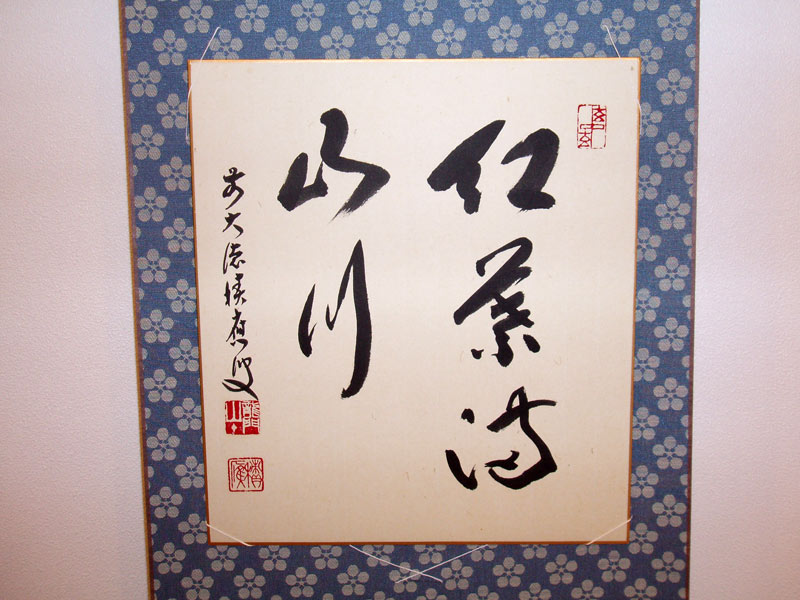 紅葉満
山川
前大徳積應叟
龍山